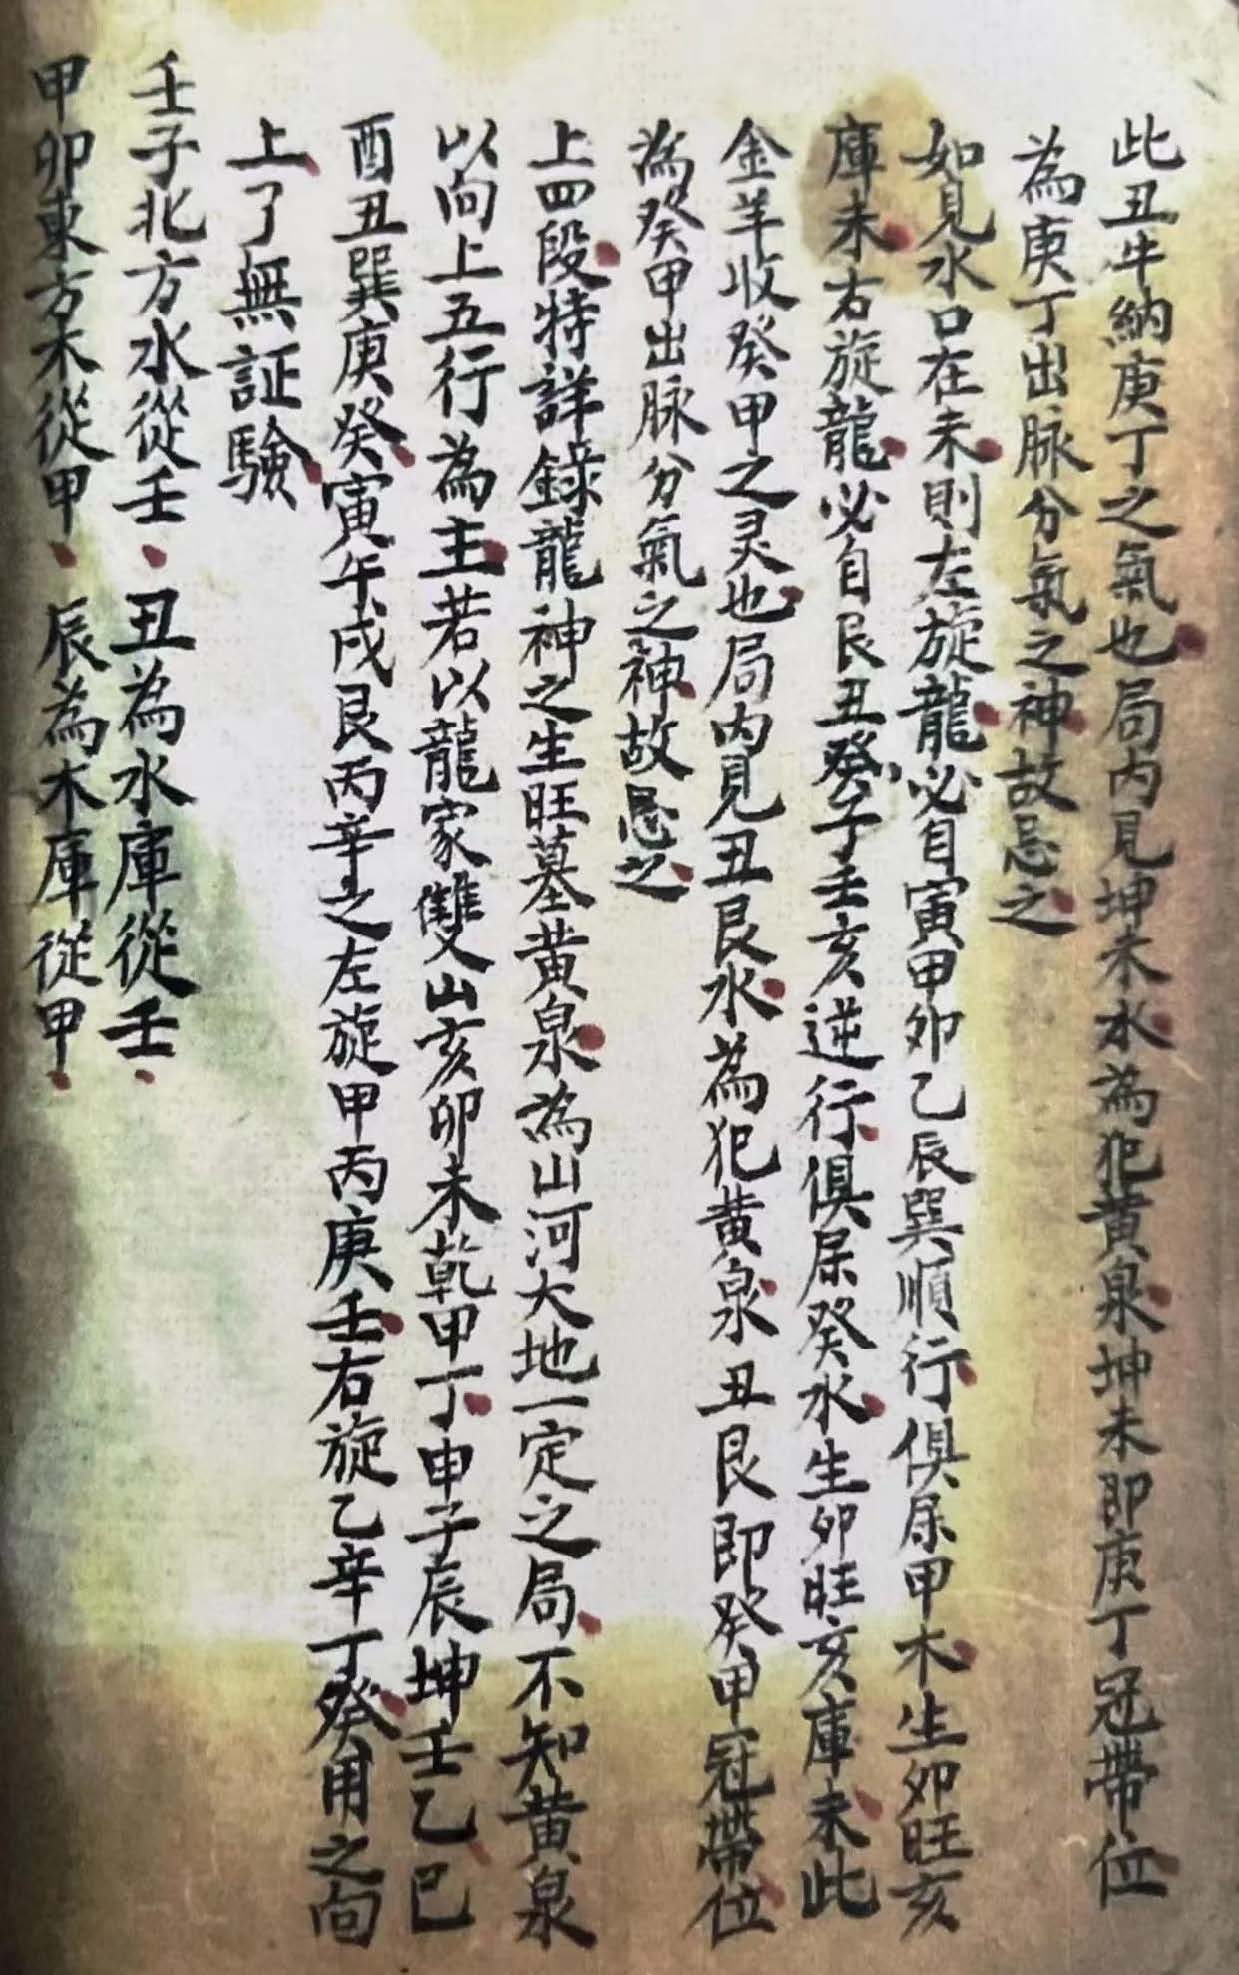 此丑牛納庚丁之氣也局内見坤未水為犯黄泉坤未即庚丁冠帶位
為庚丁出脉分氣之神故忌之
如見水口在未則左旋龍必自寅甲卯乙辰巽順行俱屬甲木生卯旺亥
庫未右旋龍必自艮丑癸子壬亥逆行俱屬癸水生卯旺亥庫未此
金羊收癸甲之灵也局内見丑艮水為犯黄泉丑艮即癸甲冠帶位
為癸甲出脉分氣之神故忌之
上四段特詳錄龍神之生旺墓黄泉為山河大地一定之局不知黄泉
以向上五行為主若以龍家雙山亥卯未乾甲丁申子辰坤壬乙巳
酉丑巽庚癸寅午戌艮丙辛之左旋甲丙庚壬右旋乙辛丁癸用之向
上了無証驗
壬子北方水從壬、丑為水庫從壬、
甲卯東方木從甲、辰為木庫從甲、